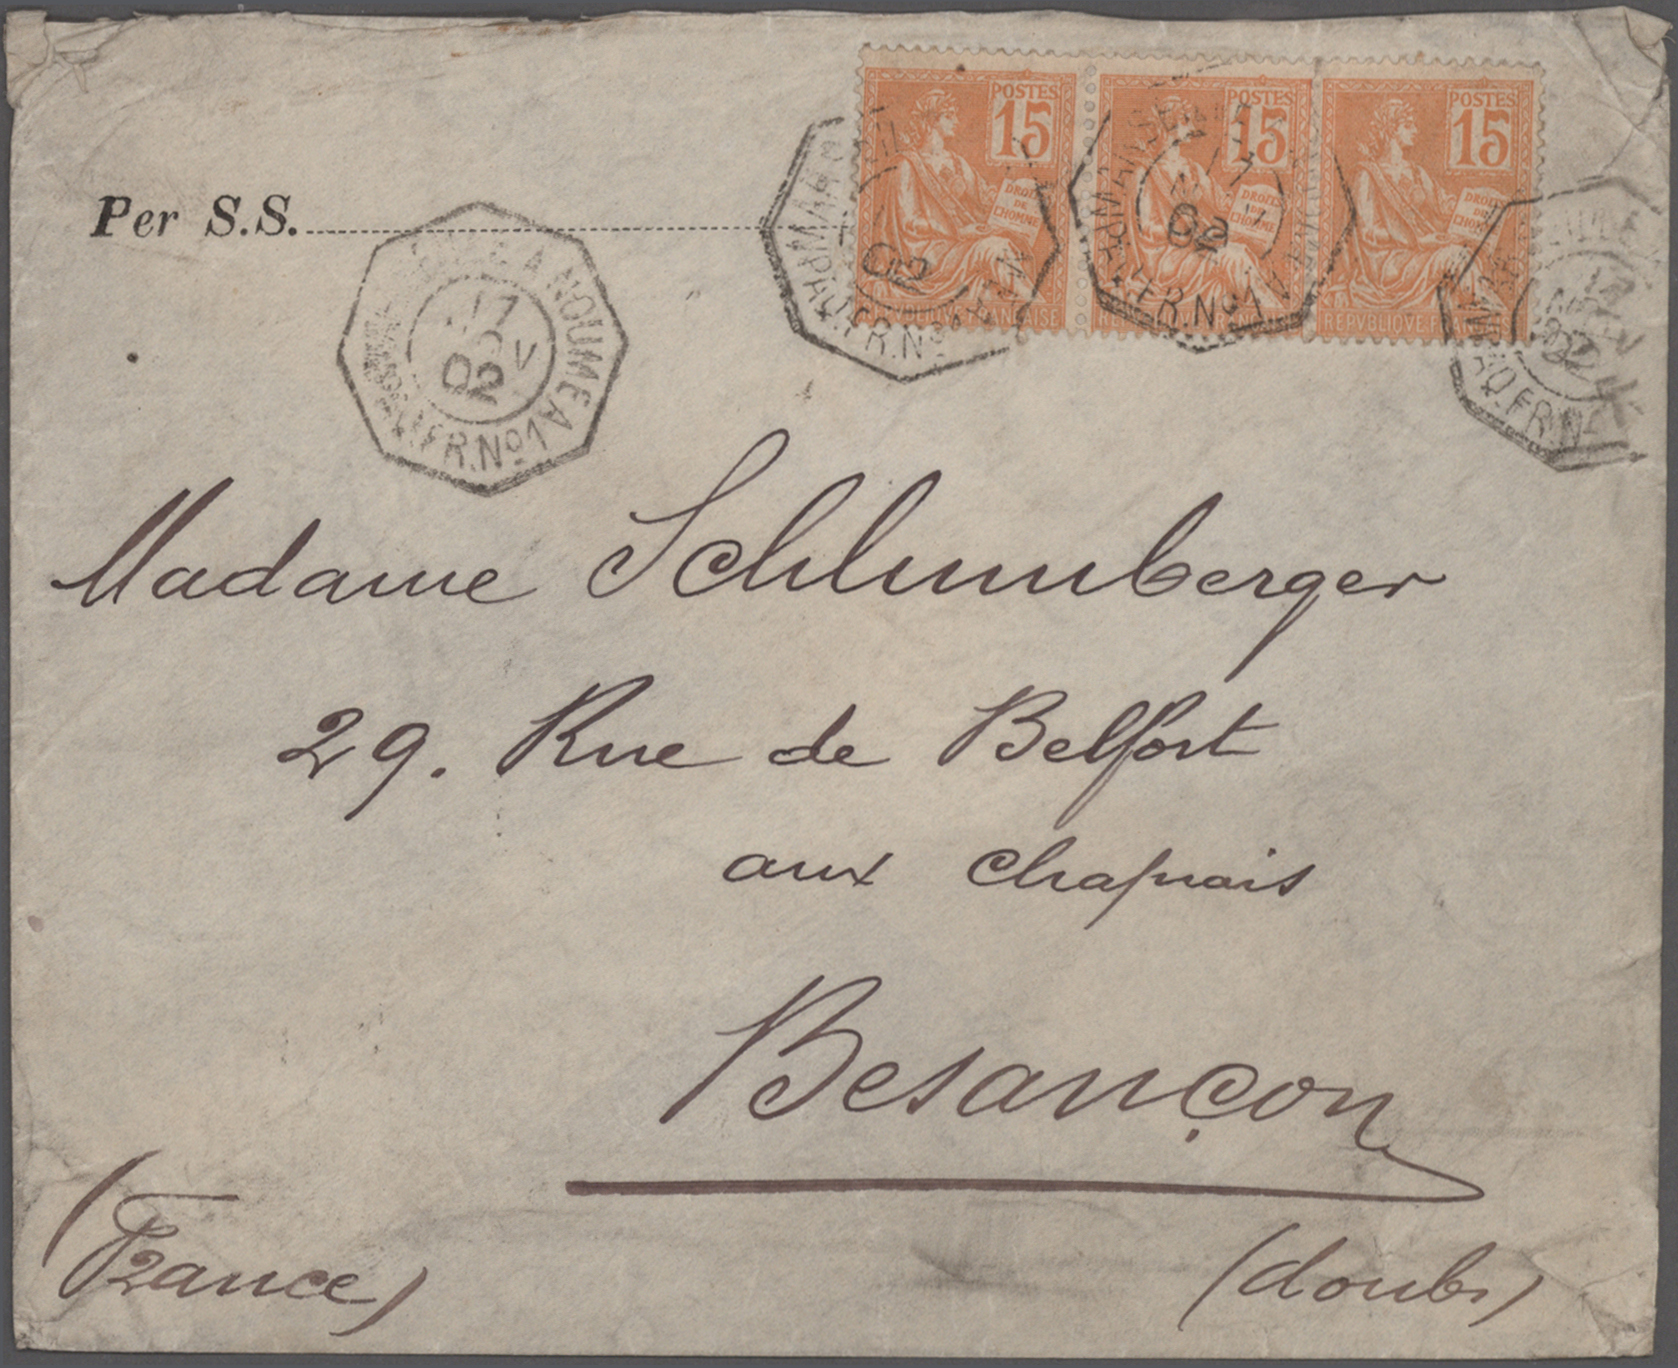 POSTES 15 POSTES 15 POSTES 15
DROITS DE L'HOMME DROITS DE L'HOMME DROITS DE L'HOMME
REPVBLIQVE FRANÇAISE REPVBLIQVE FRANÇAISE REPVBLIQVE FRANÇAISE
Per S.S.
A NOUMEA
17
NOV
02
FR. No 1
02
FR. No
17
02
FR. No 1
PAQ. FR. N
Madame Schlumberger
29. Rue de Belfort
aux Chaprais
Besançon
(France)
(doubs)